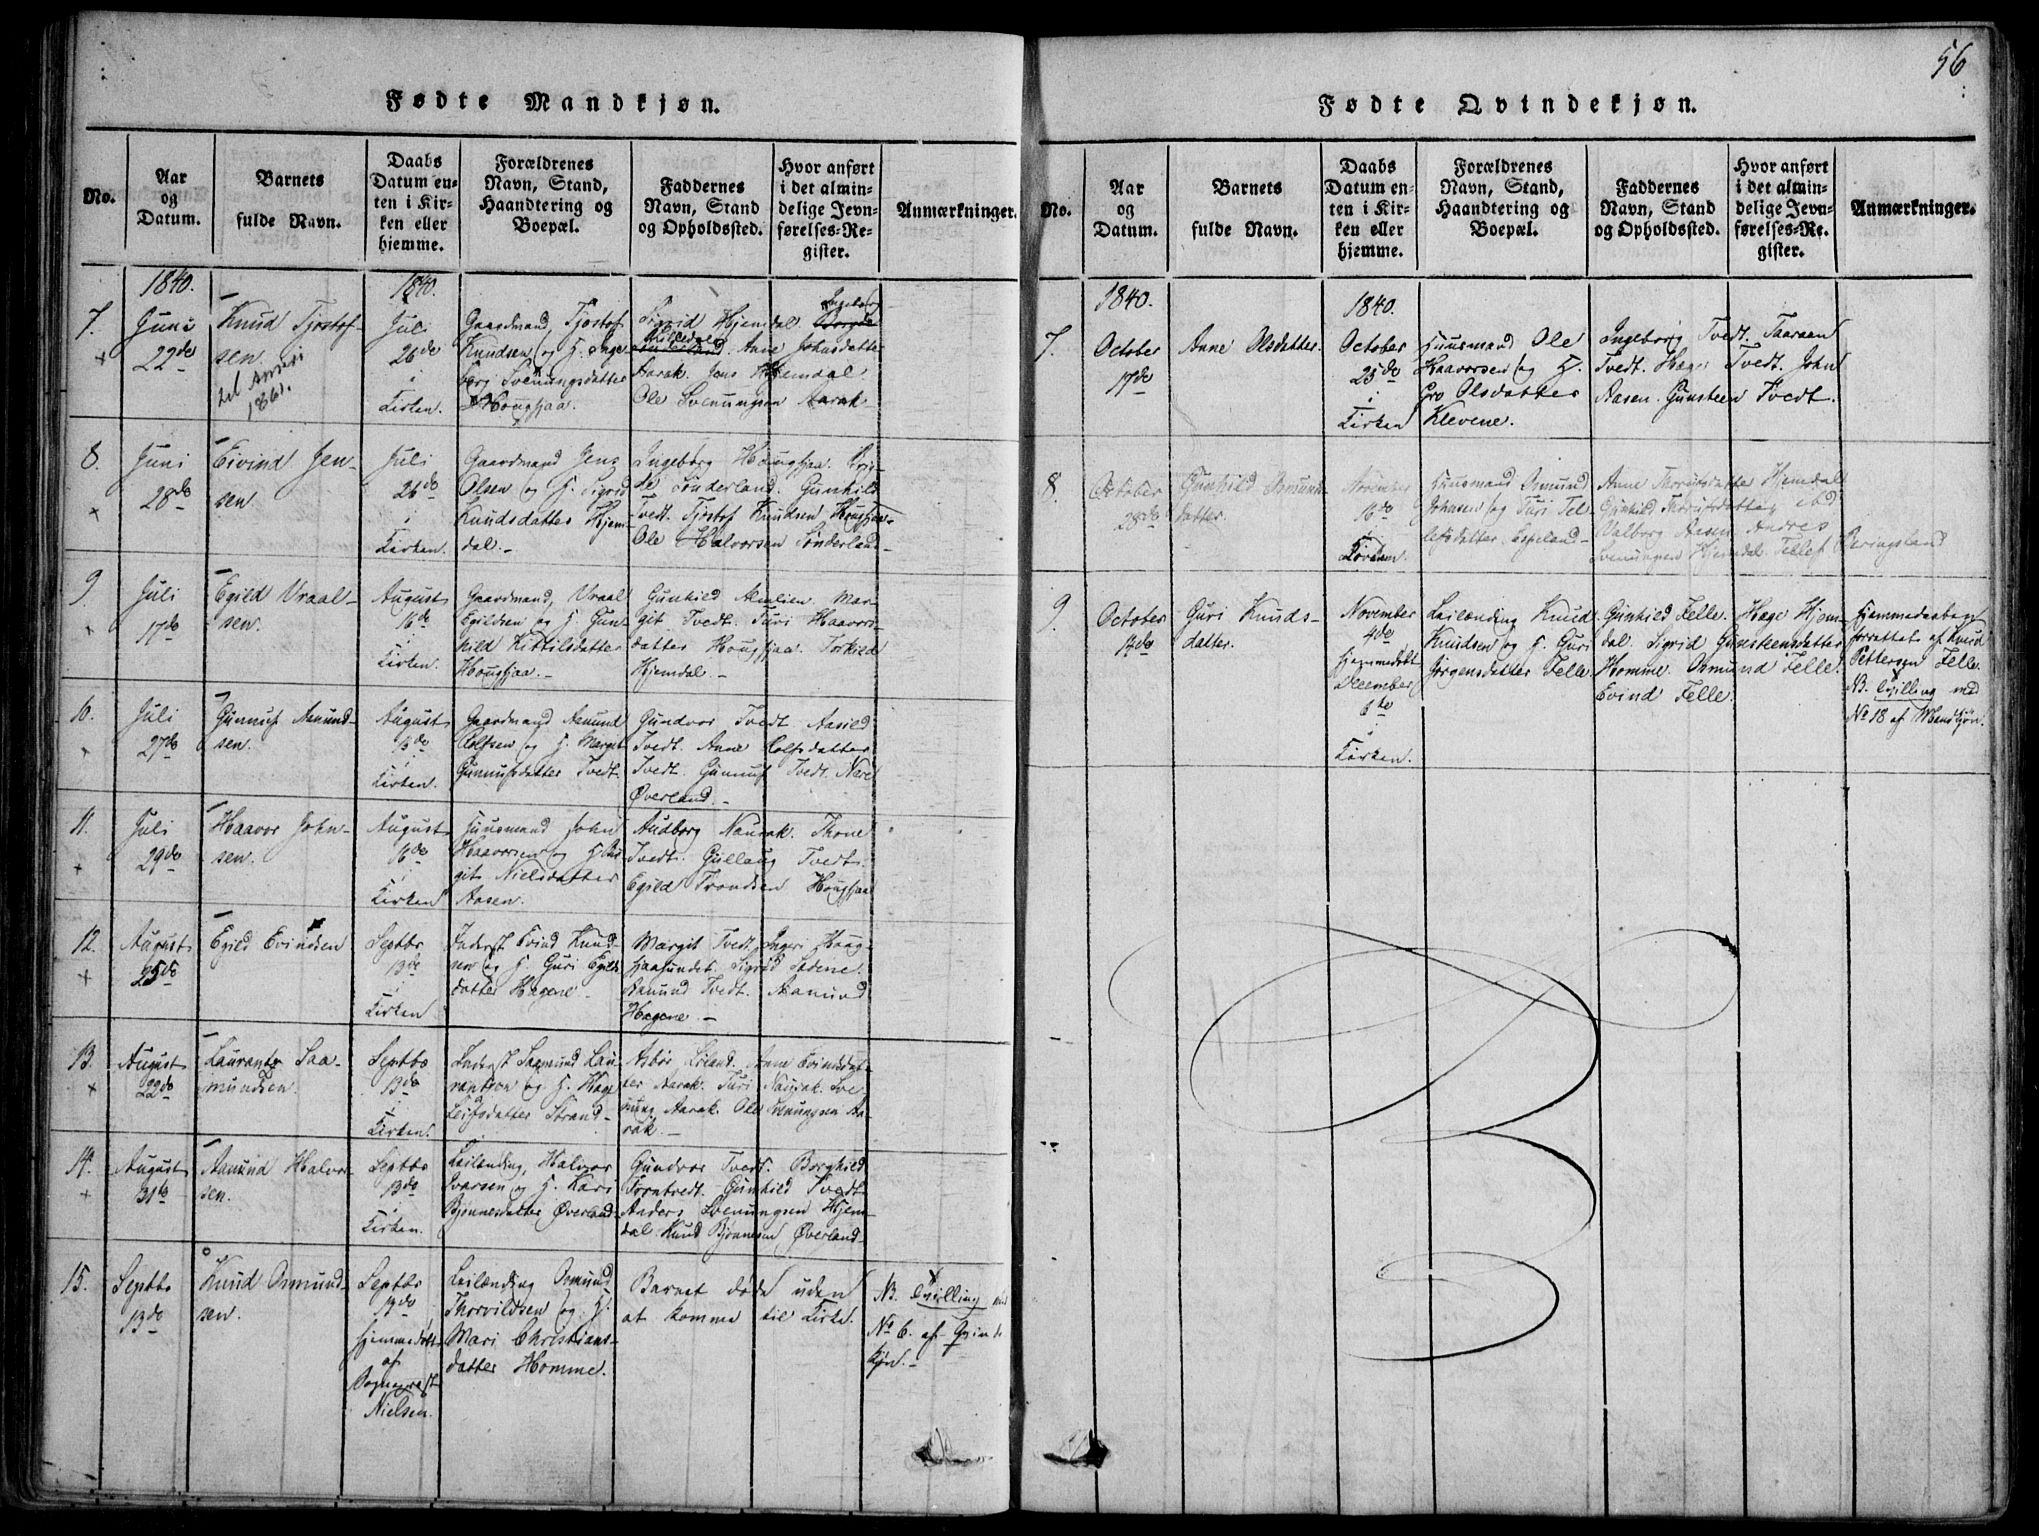 56
Fødte Mandkjøn.
No.
Aar
og
Datum.
Barnets
fulde Navn.
Daabs
Datum en-
ten i Kir-
ken eller
hjemme.
Forældrenes
Navn, Stand,
Haandtering og
Boepæl.
Faddernes
Navn, Stand
og Opholdssted.
Hvor anført
i det almin-
delige Jevn-
førelses-Re-
gister.
Anmærkninger.
1840.
1840.
7.
Juni
22de
Knud Tjostof-
sen.
1861.
Juli
26de
i
Kirken.
Gaardmand Tjostof
Knudsen og H. Inge
borg Svenungsdatter
Hougsjaa.
Sigrid Hjemdal. Ingeborg
Anne Johnsdatter
Aarak. Jens Hjemdal.
Ole Svenungsen Aarak.
8.
Juni
28de
Eivind Jen-
sen.
Juli
26de
i
Kirken.
Gaardmand Jens
Olsen og H. Sigrid
Knudsdatter Hjem-
dal.
Ingeborg Hougsjaa.
Sønderland. Gunhild
Tvedt. Tjostof Knudsen Hougsjaa.
Ole Halvorsen Sønderland.
9
Juli
17de
Egild Vraal-
sen.
August
16de
i
Kirken.
Gaardmand, Vraal
Egildsen og H. Gun-
hild Kittilsdatter
Hougsjaa.
Gunhild Mar-
git Tvedt. Turi Haavors-
datter Hougsjaa. Torkild
Hjemdal.
10.
Juli
27de
Gunnuf Asmund-
sen.
August
16de
i
Kirken.
Gaardmand Asmund
Rolfsen og H. Margit
Gunnufsdatter Tvedt.
Gundvor Tvedt. Aasild
Tvedt. Anne Rolfsdatter
Tvedt. Gunnuf Tvedt.
Øverland.
11.
Juli
29de
Haavor John-
sen.
August
16de
i
Kirken
Huusmand John
Haavorsen og H.
git Nielsdatter
Aasen.
Audborg Naurak. Thone
Tvedt. Gullaug Tvedt.
Egild Trondsen Hougsjaa
12.
August
25de
Egild Evindsen
Septbr
13de
i
Kirken
Inderst Evind Knud-
sen og H. Guri Egilds
datter Hagene.
Margit Tvedt. Inger Houg-
sjaasundet. Sigrid
Aamund Tvedt. Aamund
Hagene.
13.
August
22de
Laurants Saa-
mundsen.
Septbr
13de
i
Kirken.
Inderst Saamund Lau-
rantson og H. Hæge
Leifsdatter Strand
Anne Evindsdat-
ter Aarak. Turi Naurak. Sve-
nung Aarak. Ole Svenungsen Aa-
rak.
14.
August
31te
Aamund Halvor-
sen.
Septbr
13de
i
Kirken.
Leilænding, Halvor
Ivarsen og H. Kari
Bjønnesdatter Øverland
Gundvor Tvedt. Borghild
Forntvedt. Gunhild Tvedt
Anders Svenungsen Hjem-
dal. Knud Bjønnesen Øverland
15.
Septbr
13de
Knud Osmund-
sen.
Septbr
17de
Hjemmedøbt
af
Sognepræst
Nielsen.
Leilænding Osmund
Thorvildsen og H.
Mari Christians-
datter Homme.
Barnet døde uden
at komme til Kirke.
NB. Tvilling med
No 6. af Qvinde
Kjøn.
Fødte Qvindekjøn.
No.
Aar
og
Datum.
Barnets
fulde Navn.
Daabs
Datum en-
ten i Kir-
ken eller
hjemme.
Forældrenes
Navn, Stand,
Haandtering og
Boepæl.
Faddernes
Navn, Stand
og Opholdssted.
Hvor anført
i det almin-
delige Jevn-
førelses-Re-
gister.
Anmærkninger.
1840.
1840.
7.
October
17de
Anne Olsdatter.
October
25de
i
Kirken
Huusmand Ole
Haavorsen og H.
Gro Olsdatter
Klevene.
Ingeborg Tvedt. Tharaen
Tvedt. Hæge Tvedt. John
Aasen. Gunsteen Tvedt.
8.
October
28de
Gunhild Osmunds-
datter.
November
16de
i
Kirken.
Huusmand Osmund
Johnsen og Turi Tel-
lefsdatter Espeland
Anne Thorufsdatter Hjemdal
Gunhild Thorufsdatter ibd
Valborg Aasen. Andres
Svenungsen Hjemdal. Tellef Beringsland
9.
October
14de
Guri Knuds-
datter.
November
4de
Hjemmedøbt
December
6te
i
Kirken.
Leilænding Knud
Knudsen og H. Guri
Jørgensdatter Felle
Gunhild Felle. Hæge Hjem-
dal. Sigrid Gunsteensdatter
Homme. Osmund Felle.
Evind Felle.
Hjemmedaaben
forrettet af Knud
Pettersen Felle.
NB. Tvilling med
No 18 af Mandkjøn.